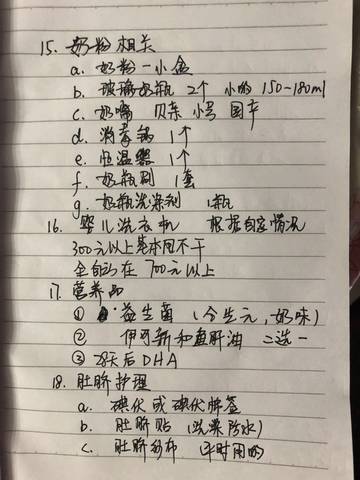 15. 奶粉相关
a. 奶粉一小盒
b. 玻璃奶瓶 2个 小的 150~180ml
c. 奶嘴 贝亲 小号 国产
d. 消毒锅 1个
e. 恒温器 1个
f. 奶瓶刷 1套
g. 奶瓶洗涤剂 1瓶
16. 婴儿洗衣机 根据自家情况
300元以上基本同不干
全自动在 700元以上
17. 营养品
① 益生菌 (合生元,奶味)
② 伊可新和鱼肝油 二选一
③ 28天后DHA
18. 肚脐护理
a. 碘伏或碘伏棉签
b. 肚脐贴 (洗澡防水)
c. 肚脐纱布 平时用的